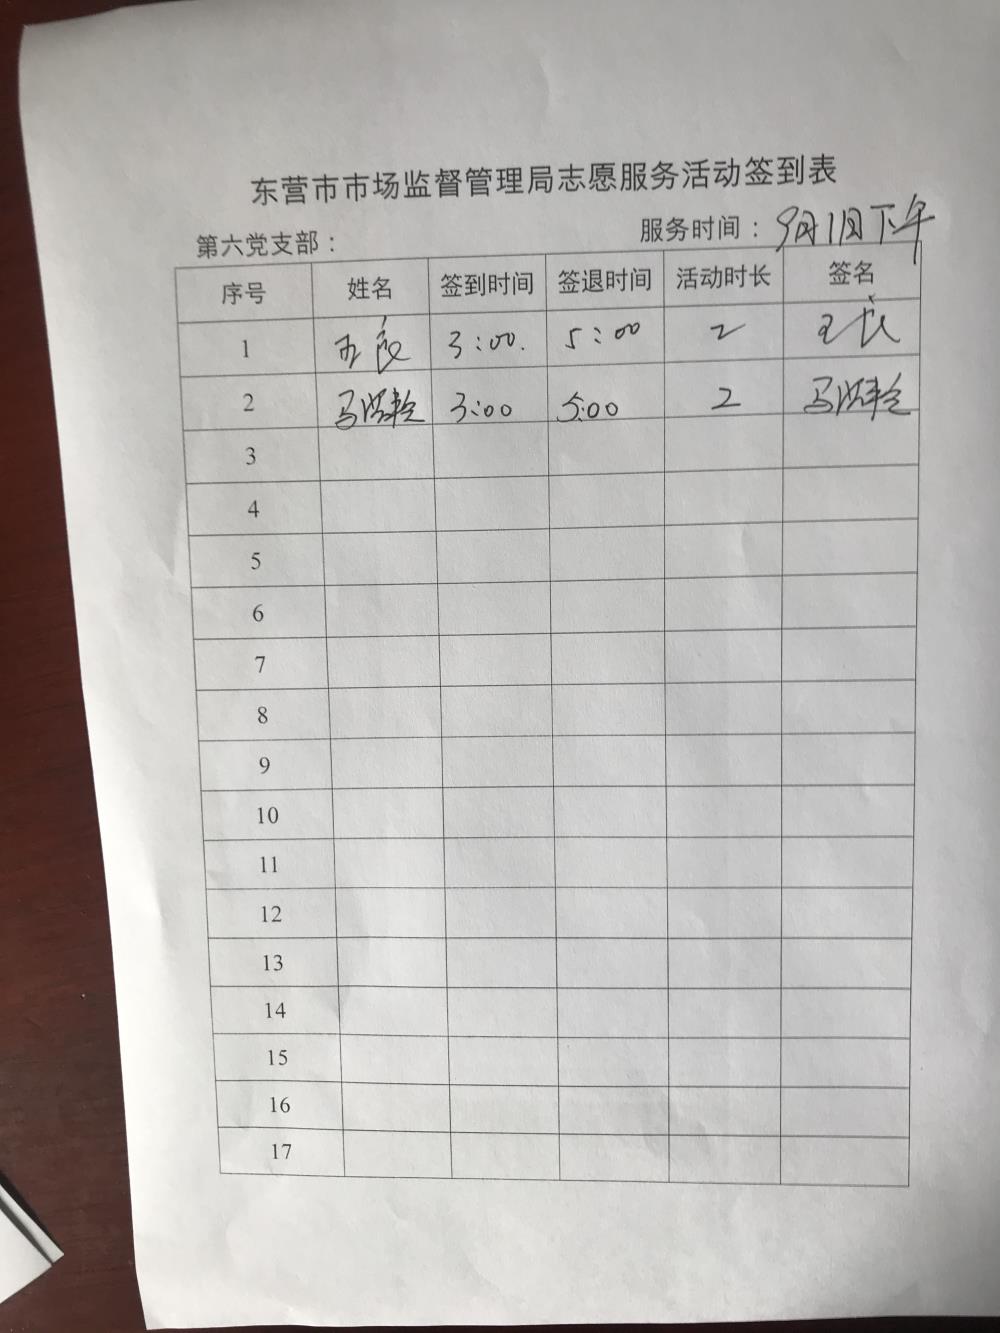 东营市市场监督管理局志愿服务活动签到表
第六党支部： 服务时间：9月1日下午
序号 姓名 签到时间 签退时间 活动时长 签名
1 王良 3:00. 5:00 2 王良
2 马 3:00 5:00 2 马
3
4
5
6
7
8
9
10
11
12
13
14
15
16
17